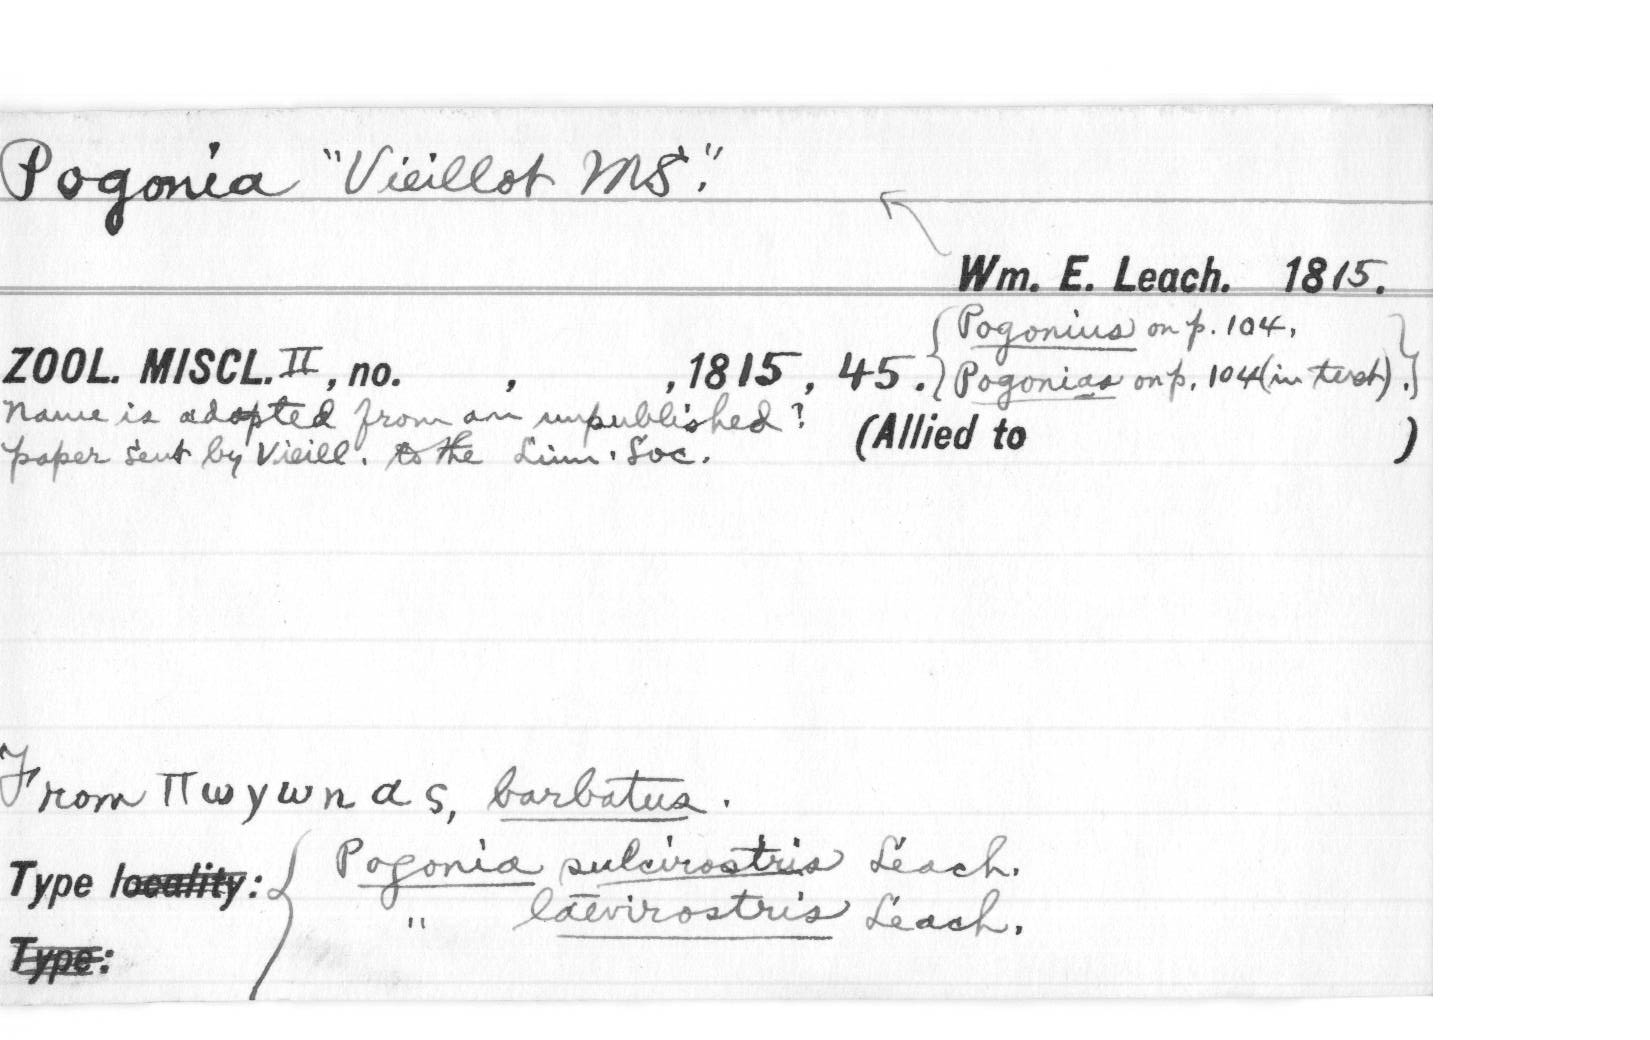 Pogonia "Vieillot MS".
Wm. E. Leach. 1815.
ZOOL. MISCL. II, no. , , 1815, 45. {Pogonius on p. 104,
Pogonias on p. 104 (in text).}
Name is adopted from an unpublished?
paper sent by Vieill. to the Linn. Soc.
(Allied to )
From πωγωναs, barbatus.
Type locality: { Pogonia sulcirostris Leach.
" laevirostris Leach.
Type: